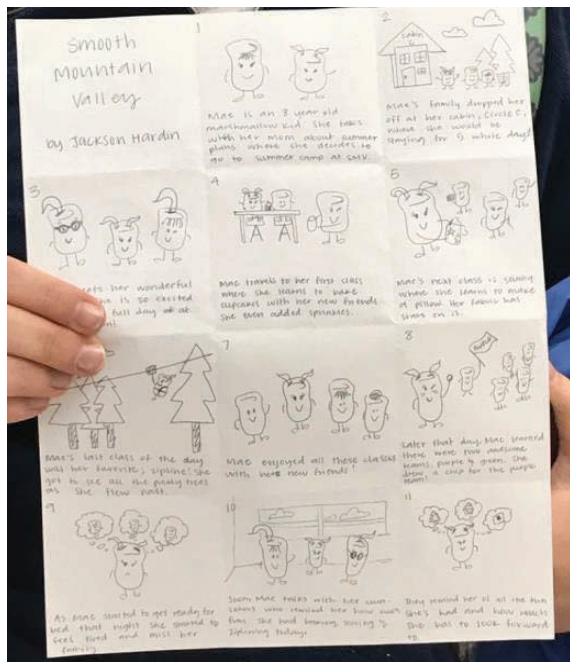 Smooth
Mountain
Valley
by Jackson Hardin
1
Mae is an 8 year old
marshmallow kid. She talks
with her mom about summer
plans where she decides to
go to summer camp at SMV.
2
Cabin C
Mae's family dropped her
off at her cabin, Circle C,
where she would be
staying for 5 whole days!
3
her wonderful
she is so excited
full day of at
4
Mae travels to her first class
where she learns to bake
cupcakes with her new friends
She even added sprinkles.
5
Mae's next class is sewing
where she learns to make
a pillow. Her fabric has
stars on it.
Mae's last class of the day
was her favorite; zipline! She
got to see all the pretty trees
as she flew past.
7
Mae enjoyed all these classes
with her new friends!
8
Later that day, Mae learned
there were two awesome
teams, purple & green. She
drew a chip for the purple
team!
9
As Mae started to get ready for
bed that night she started to
feel tired and miss her
family.
10
Soon Mae talks with her coun-
selors who remind her how much
fun she had baking, sewing &
ziplining today.
11
They remind her of all the fun
she's had and how much
she has to look forward
to.